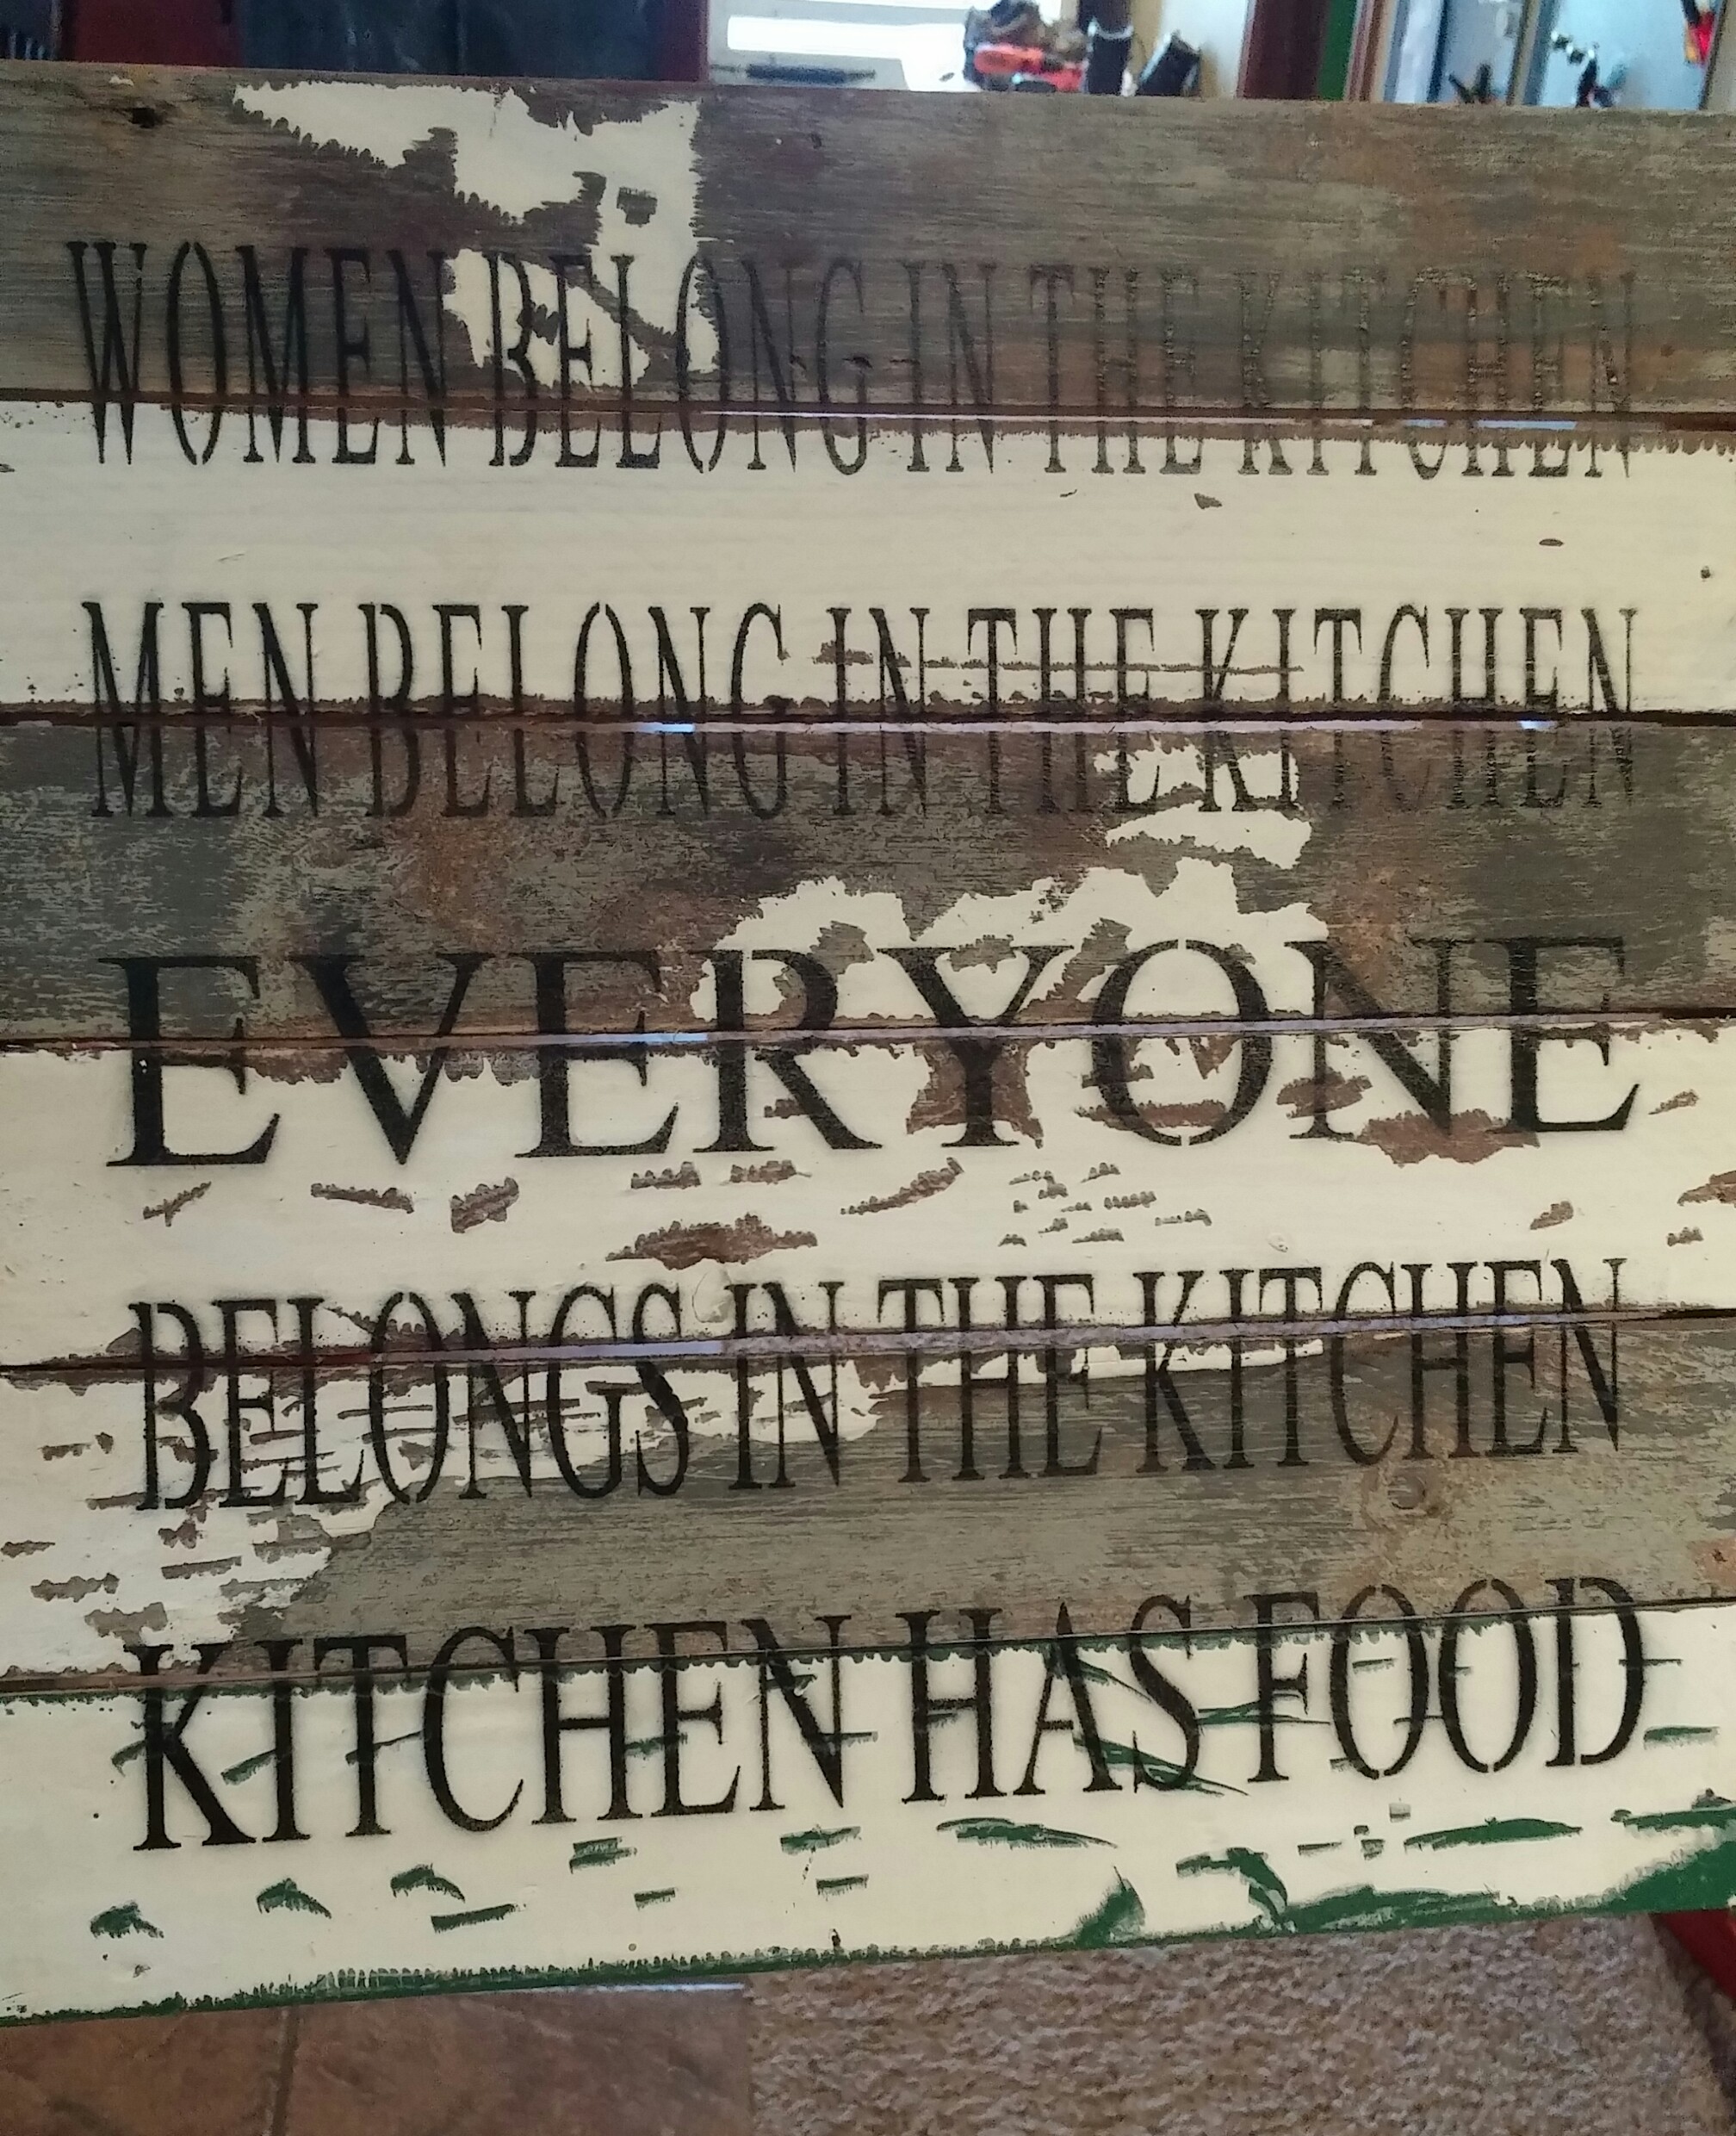 WOMEN BELONG IN THE KITCHEN
MEN BELONG IN THE KITCHEN
EVERYONE
BELONGS IN THE KITCHEN
KITCHEN HAS FOOD